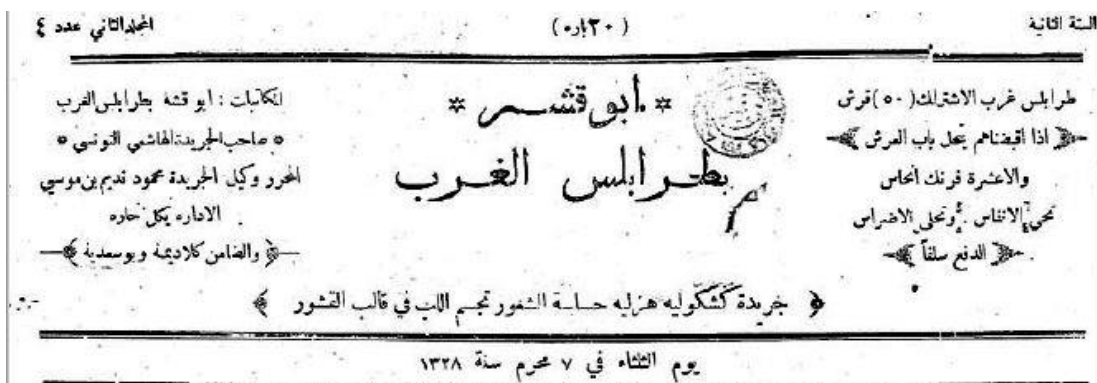 السنة الثانية
( ٣٠ باره )
المجلد الثاني عدد ٤
طرابلس غرب الاشتراك (٥٠) قرش
اذا اقبضناهم نحل باب العرش
والاعشرة فرنك انحاس
تحي الانفاس . وتحلى الاضراس
الدفع سلفاً
* أبو قشـــر *
بطـرابلس الغـرب
المكاتبات : ابو قشه بطرابلس الغرب
ه صاحب الجريدة الهاشمي التونسي ه
المحرر وكيل الجريدة محمود نديم بن موسي
الاداره بكل حاره
والضامن كلاديمة وبوسعدية
جريدة كشكوليه هزليه حساسة الشعور تجسم اللب في قالب القشور
يوم الثلثاء في ٧ محرم سنة ١٣٢٨